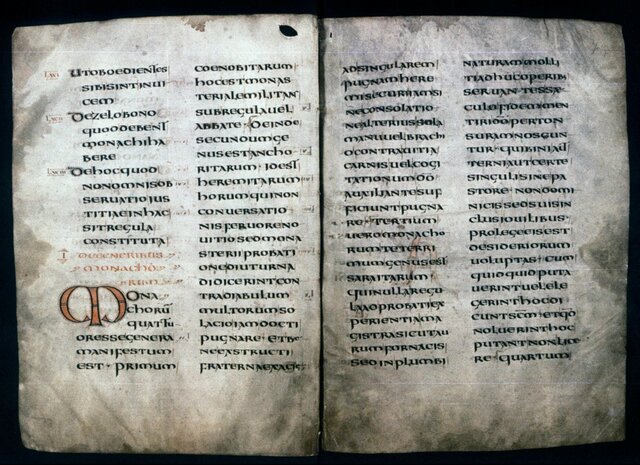 LXXI UTOBOEDIENTES
SIBISINTINUI
CEM
LXXII DEZELOBONO
QUODEBENT
MONACHIHA
BERE
LXXIII DEHOCQUOD
NONOMNISOB
SERUATIOIUS
TITIAEINHAC
SITREGULA
CONSTITUTA
I DEGENERIBUS
MONACHO
RUM
MONA
CHORŪ
QUATTU
ORESSEGENERA
MANIFESTUM
EST · PRIMUM
COENOBITARUM
HOCESTMONAS
TERIALEMILITAN
SUBREGULAUEL
ABBATE · DEINDE
SECUNDUMGE
NUSESTANCHO
RITARUM · IDEST
HEREMITARUM
HORUMQUINON
CONUERSATIO
NISFERUORENO
UITIOSEDMONA
STERIIPROBATI
ONEDIUTURNA
DIDICERINTCON
TRADIABULUM
MULTORUMSO
LACIOIAMDOCTI
PUGNARE · ETBE
NEEXSTRUCTI
FRATERNAEXACIE
ADSINGULAREM
PUGNAMHERE
MISECURIIAMSI
NECONSOLATIO
NEALTERIUSSOLA
MANUUELBRACHI
OCONTRAUITIA
CARNISUELCOGI
TATIONUMDŌ
AUXILIANTESUF
FICIUNTPUGNA
RE · TERTIUM
UEROMONACHO
RUMTETERRI
MUMGENUSEST
SARAITARUM
QUINULLAREGU
LAADPROBATIEX
PERIENTIAMA
GISTRASICUTAU
RUMFORNACIS
SEDINPLUMBI
NATURAMMOLLI
TIADHUCOPERIBS
SERUANTESSAE
CULOFIDEMMEN
TIRIDŌPERTON
SURAMNOSCUN
TUR · QUIBINIAUT
TERNIAUTCERTE
SINGULISINEPA
STORE · NONDOMI
NICISSEDSUISIN
CLUSIOUILIBUS ·
PROLEGEEISEST
DESIDERIORUM
UOLUPTAS · CUM
QUIDQUIDPUTA
UERINTUELELE
GERINTHOCDI
CUNTSCM · ETQD
NOLUERINTHOC
PUTANTNONLICE
RE · QUARTUM